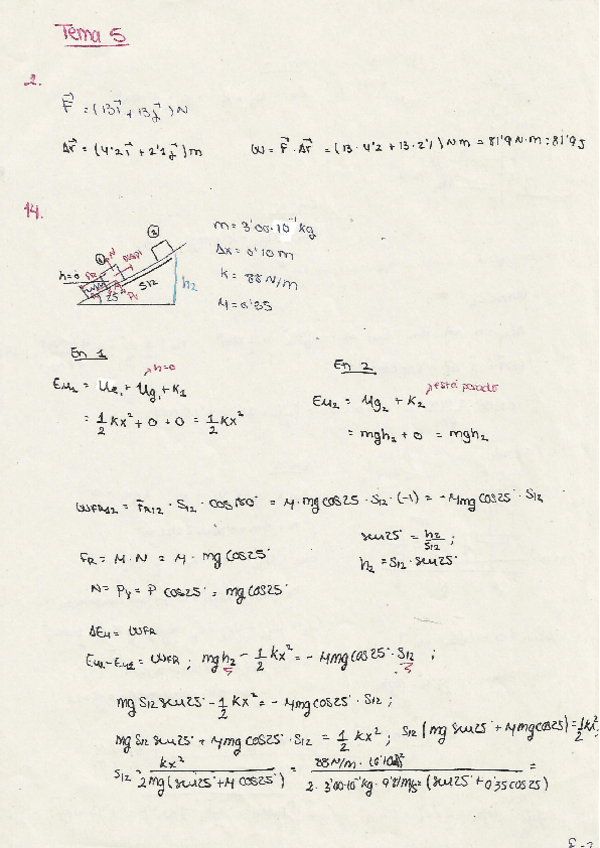 Tema 5
2.
F⃗ = (13i⃗ + 13j⃗) N
Δr⃗ = (4'2i⃗ + 2'1j⃗) m    W = F⃗ · Δr⃗ = (13 · 4'2 + 13 · 2'1) Nm = 81'9 N·m = 81'9 J
14.
m = 3'00·10⁻¹ kg
Δx = 0'10 m
K = 88 N/m
μ = 0'35
1 N FR h=0 25° Py S12 2 h2
En 1    En 2
h=0    está parado
EM1 = Ue1 + Ug1 + K1    EM2 = Ug2 + K2
= 1/2 Kx² + 0 + 0 = 1/2 Kx²    = mgh2 + 0 = mgh2
WFR12 = FR12 · S12 · cos180° = μ · mg cos25° · S12 · (-1) = - μmg cos25° · S12
sen25° = h2/S12 ;
FR = μ · N = μ · mg cos25°    h2 = S12 · sen25°
N = Py = P cos25° = mg cos25°
ΔEM = WFR
EM2 - EM1 = WFR ; mgh2 - 1/2 Kx² = - μmg cos25° · S12 ;
mg S12 sen25° - 1/2 Kx² = - μmg cos25° · S12 ;
mg S12 sen25° + μmg cos25° · S12 = 1/2 Kx² ; S12 (mg sen25° + μmg cos25°) = 1/2 Kx² ;
S12 = Kx² / 2mg(sen25° + μ cos25°) = 88 N/m · (0'10)² / 2 · 3'00·10⁻¹ kg · 9'81 m/s² (sen25° + 0'35 cos25°) =